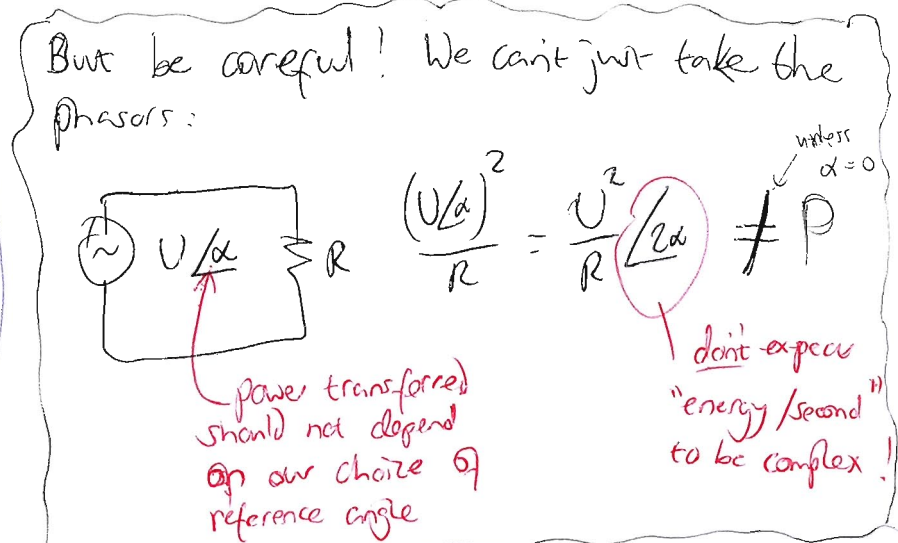 But be careful! We can't just take the
phasors:
unless
α=0
U/α
R
(U/α)² / R = U²/R /2α ≠ P
power transferred
should not depend
on our choice of
reference angle
don't expect
"energy/second"
to be complex!